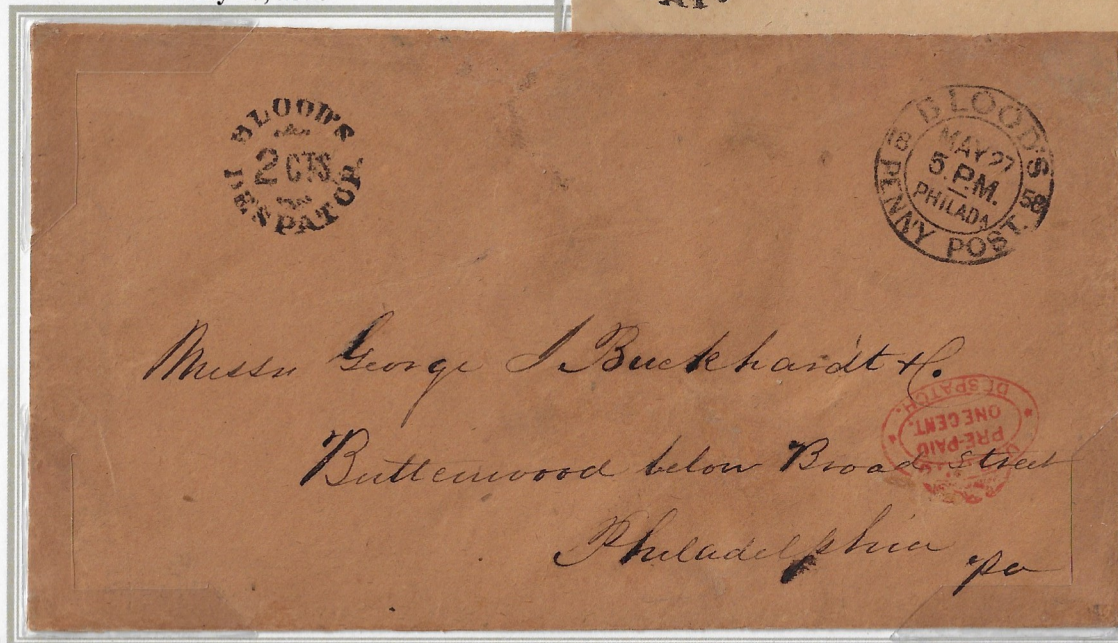 BLOOD'S
2 CTS
DESPATCH
BLOOD'S
18 58
MAY 27
5. P.M.
PHILADA
PENNY POST.
Messrs George J Buckhardt & Co.
Buttonwood below Broad Street
Philadelphia
pa
PRE-PAID
ONE CENT.
DESPATCH.